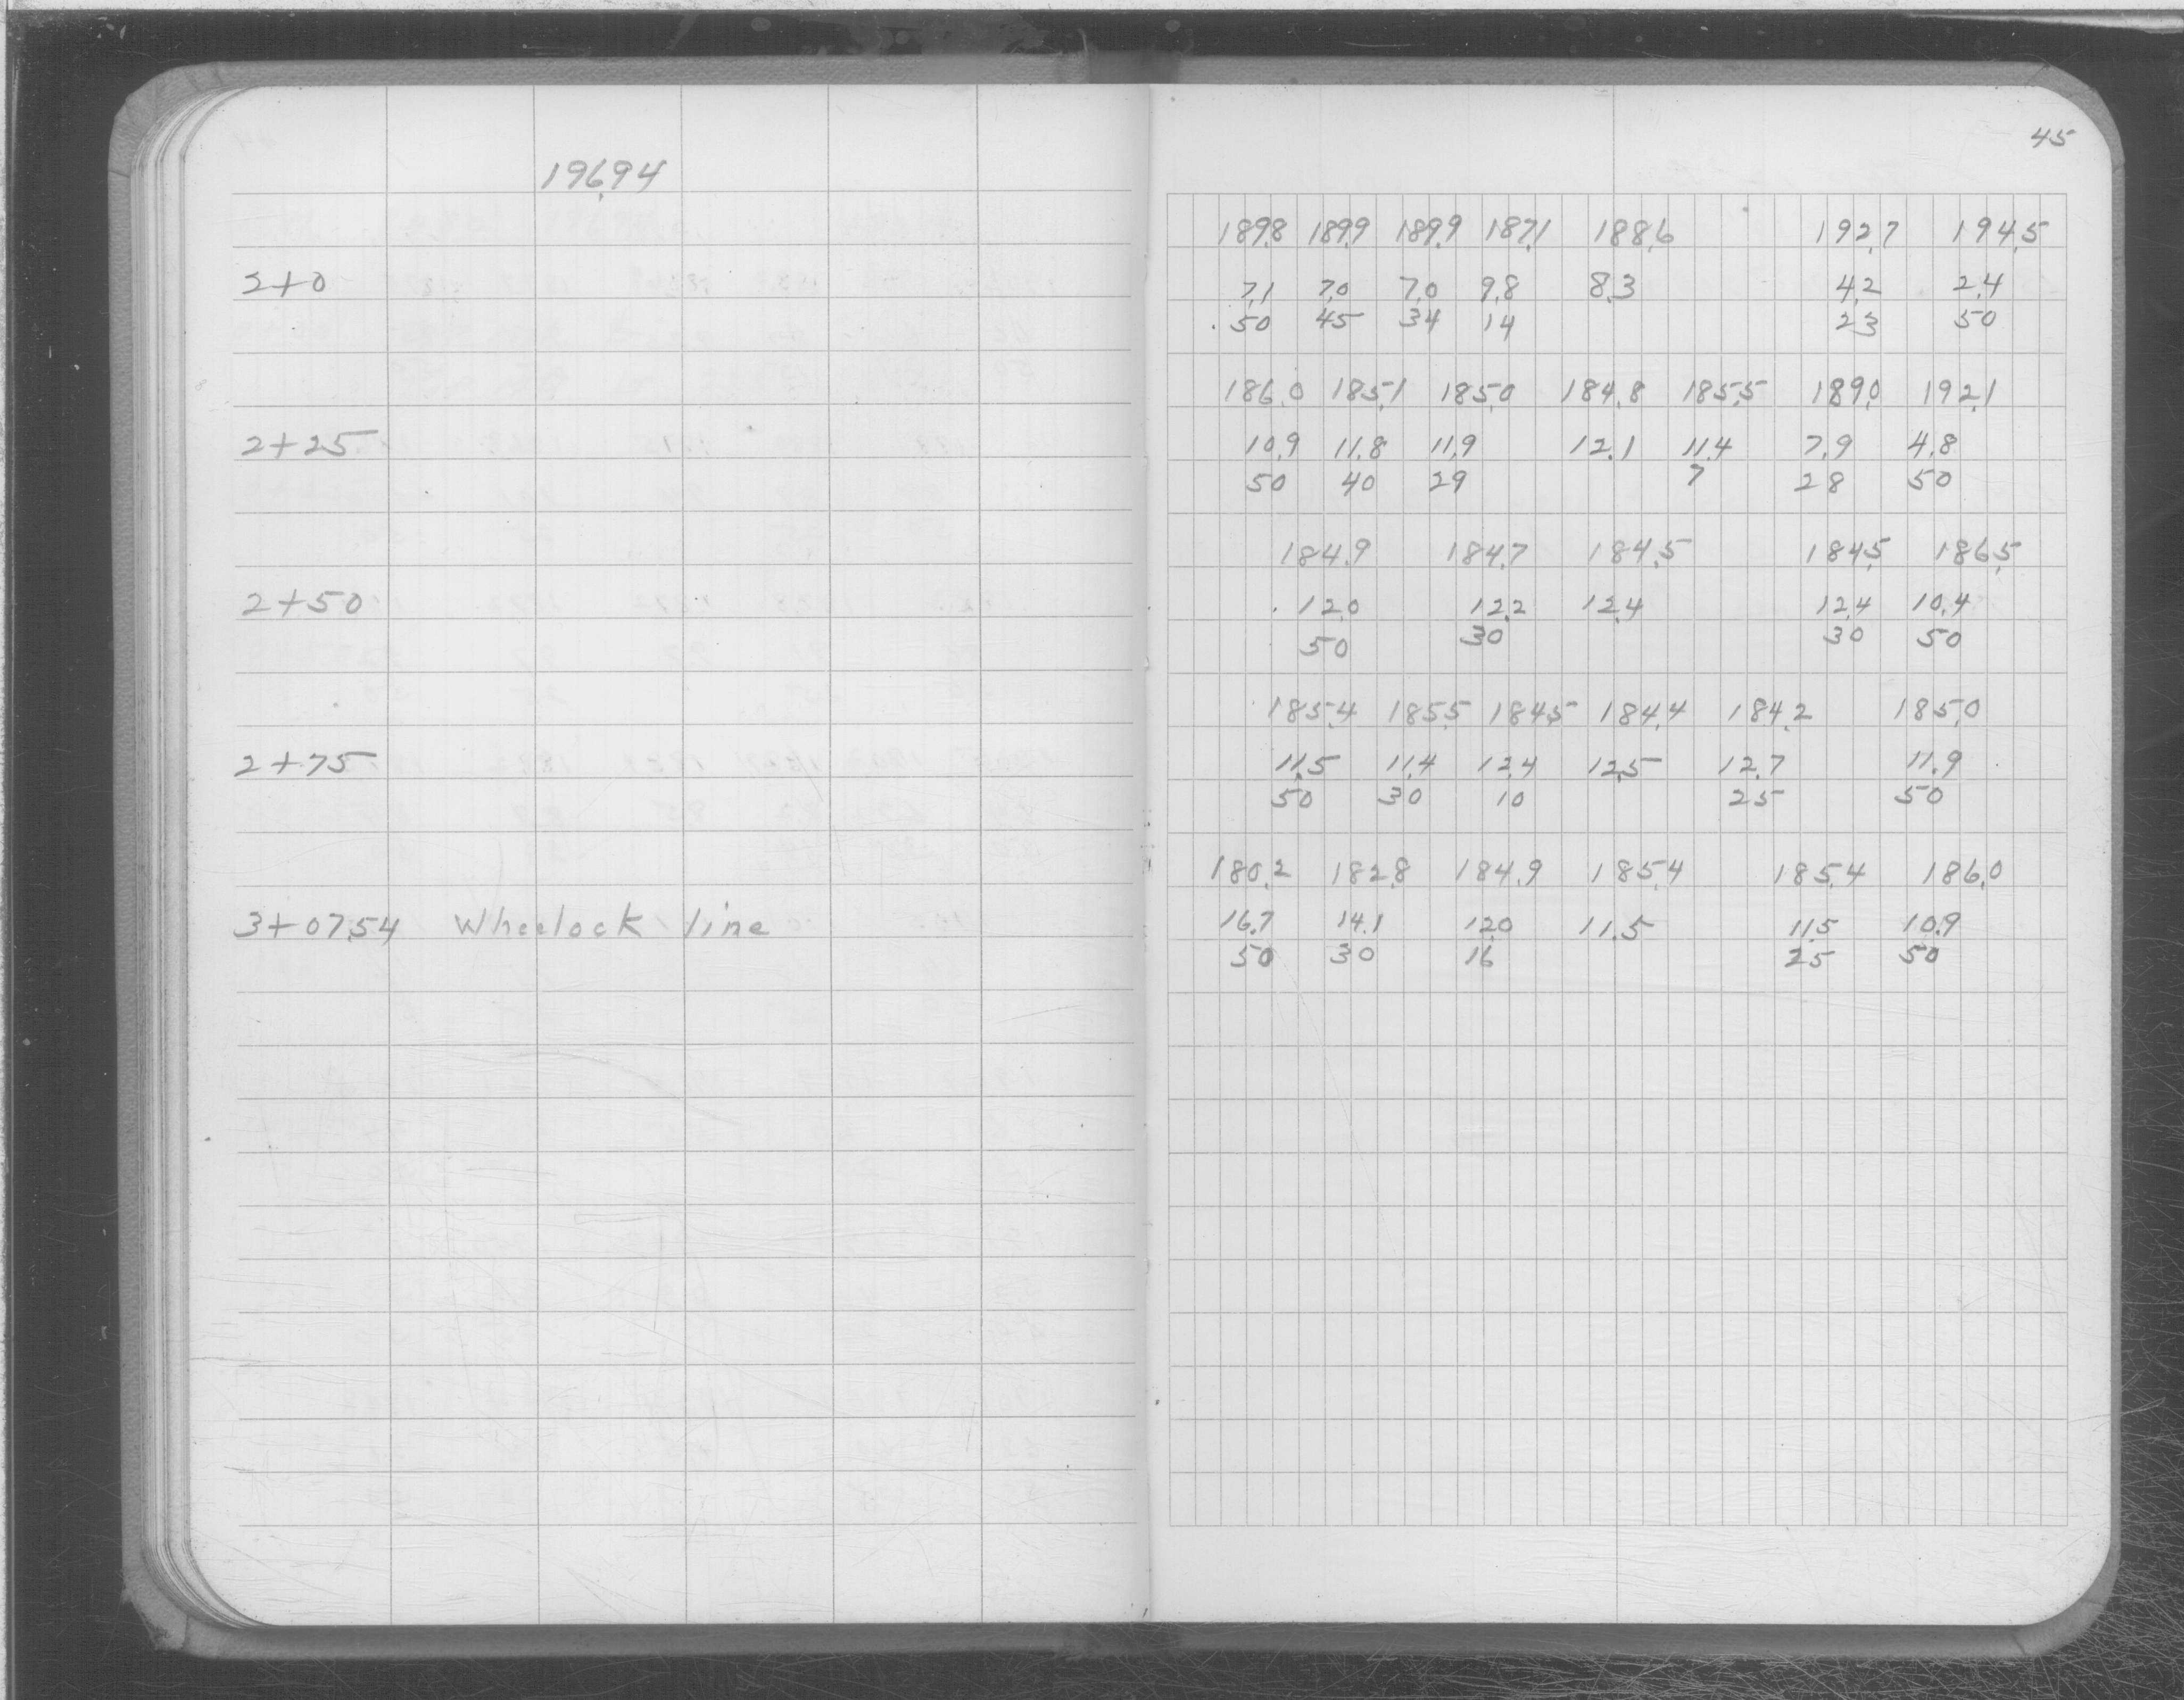 45
196.94
189.8 189.9 189.9 187.1 188.6 192.7 194.5
2+0 7.1 7.0 7.0 9.8 8.3 4.2 2.4
50 45 34 14 23 50
186.0 185.1 185.0 184.8 185.5 189.0 192.1
2+25 10.9 11.8 11.9 12.1 11.4 7.9 4.8
50 40 29 7 28 50
184.9 184.7 184.5 184.5 186.5
2+50 12.0 12.2 12.4 12.4 10.4
50 30 30 50
185.4 185.5 184.5 184.4 184.2 185.0
2+75 11.5 11.4 12.4 12.5 12.7 11.9
50 30 10 25 50
180.2 182.8 184.9 185.4 185.4 186.0
3+07.54 Wheelock line 16.7 14.1 12.0 11.5 11.5 10.9
50 30 16 25 50